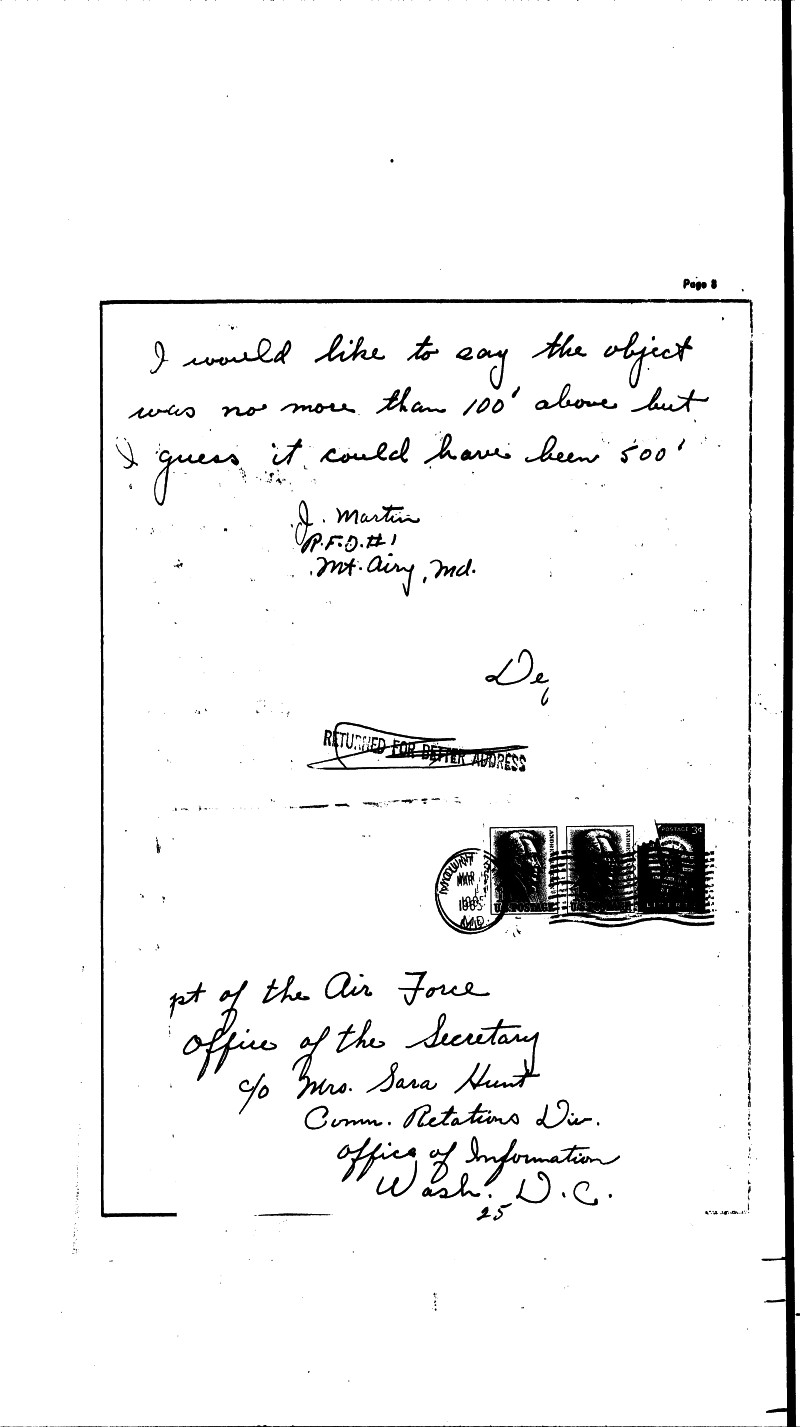 Page 8
I would like to say the object
was no more than 100' above but
I guess it could have been 500'
J. Martin
R.F.D. #1
Mt. Airy, Md.
De
RETURNED FOR BETTER ADDRESS
POSTAGE 3¢
MAR
1965
MD.
U.S. POSTAGE
LIBERTY
pt of the Air Force
Office of the Secretary
c/o Mrs. Sara Hunt
Comm. Relations Div.
Office of Information
Wash. D.C.
25